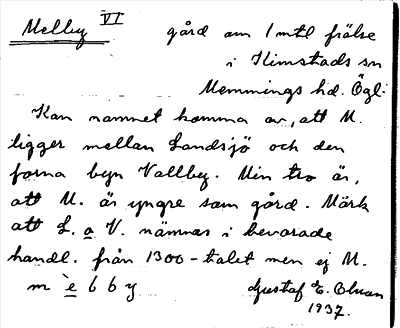 Melby VI gård om 1 mtl frälse
i Kimstads sn
Memmings hd. Ögl.
Kan namnet komma av, att M.
ligger mellan Landsjö och den
forna byn Vallby. Min tro är,
att M. är yngre som gård. Märk
att L. o V. nämnas i bevarade
handl. från 1300-talet men ej M.
m è b b y Gustaf E. Olsson
1937.